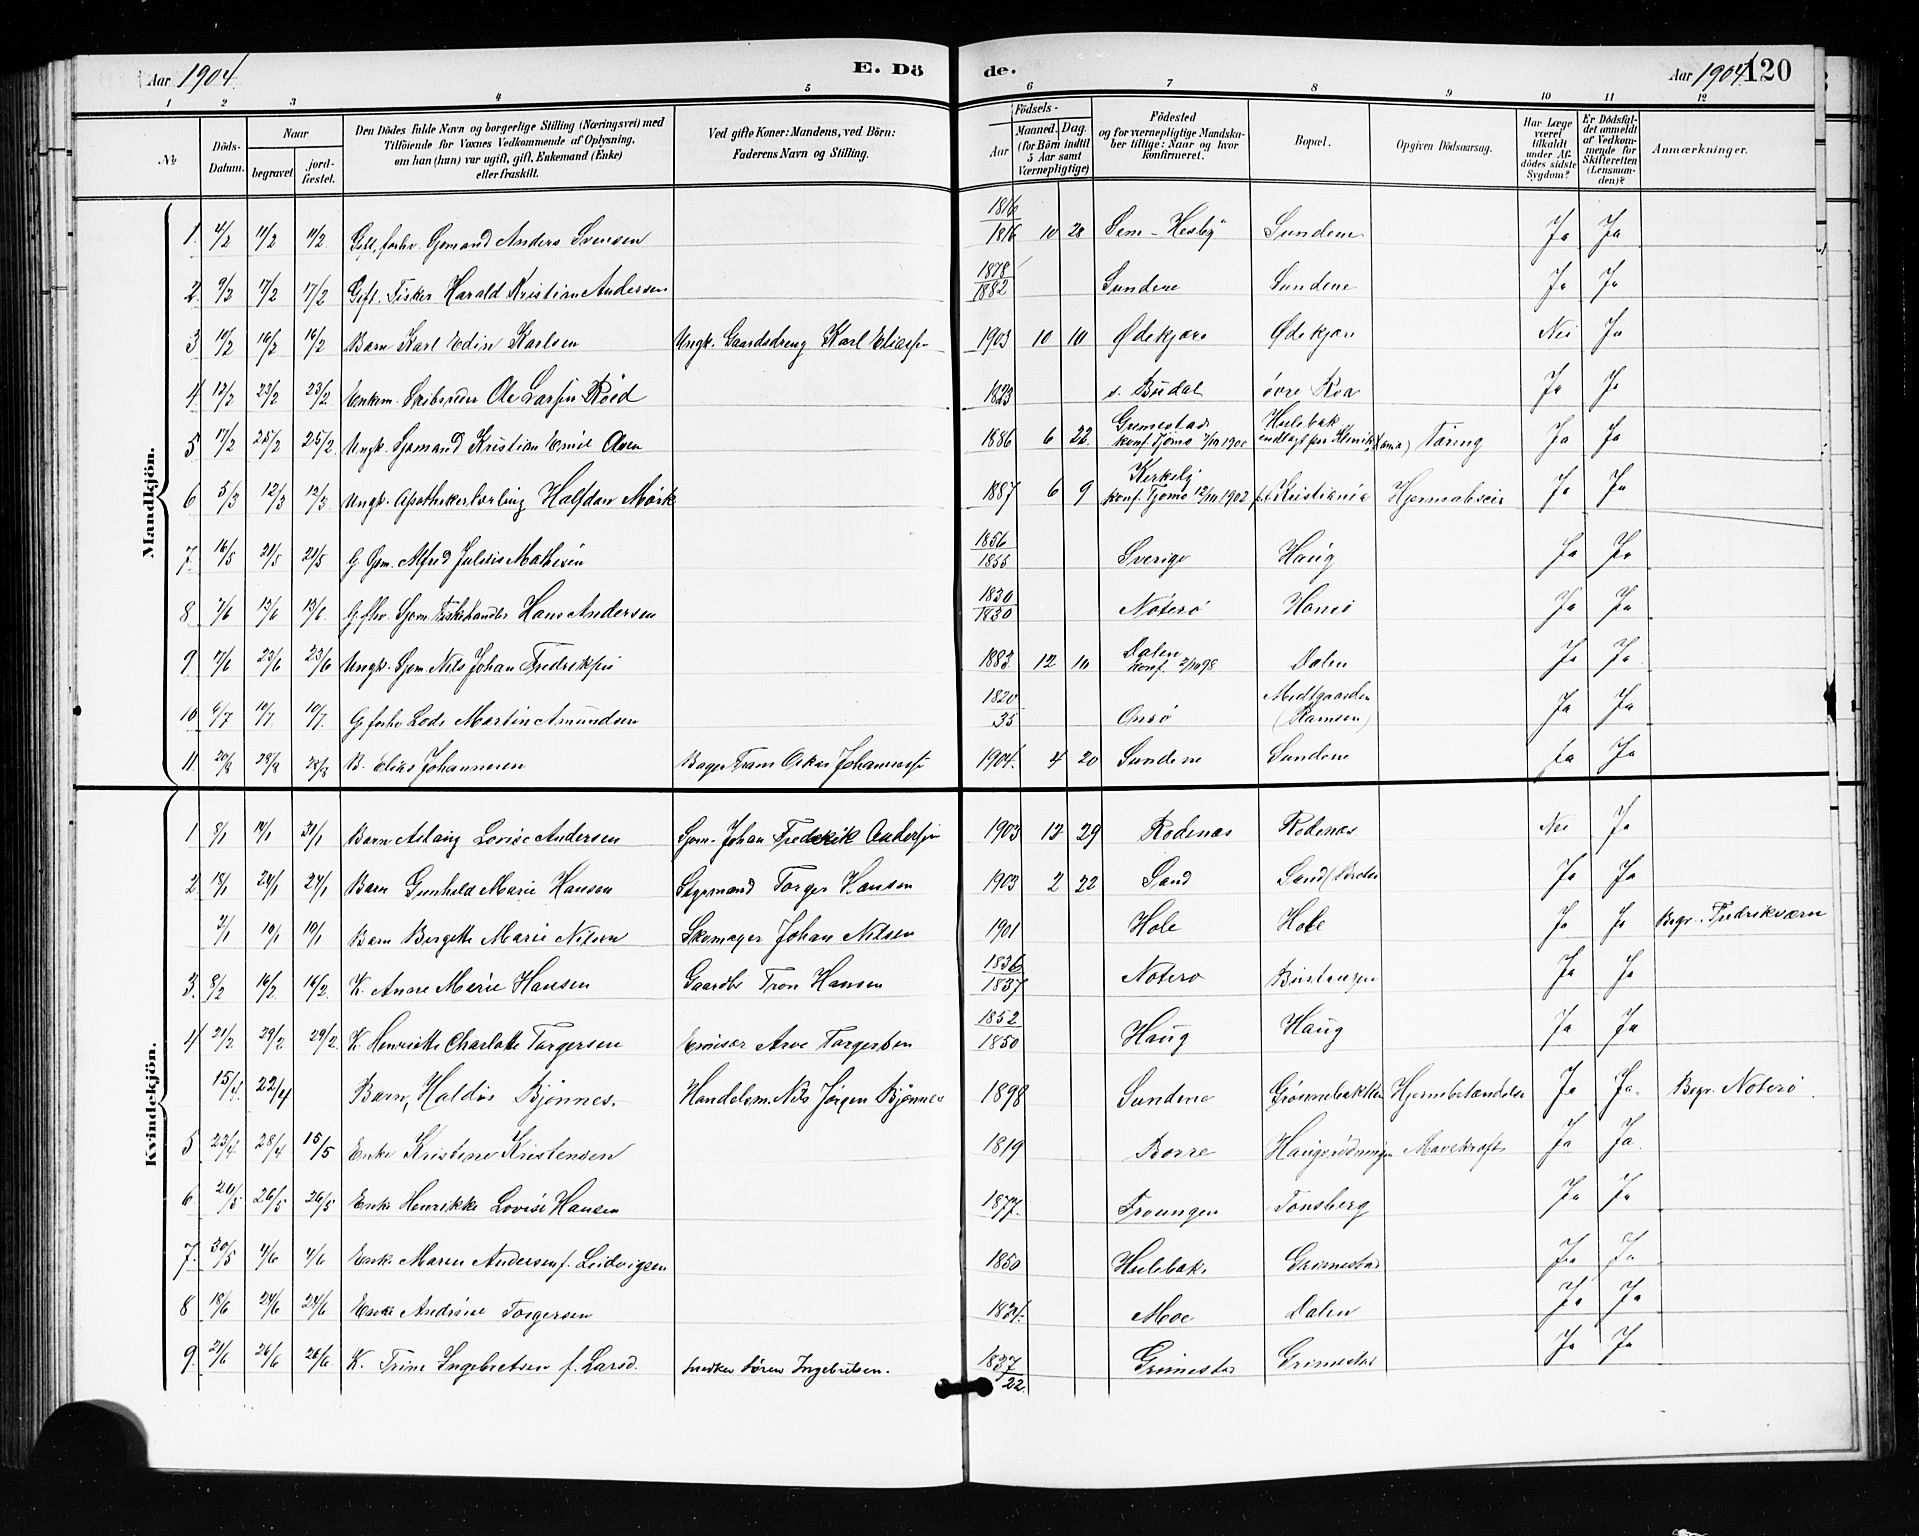 Aar 1904. E. Dö de. Aar 1904. 120
1 2 3 4 5 6 7 8 9 10 11 12
No
Döds-Datum.
Naar
begravet
jord-fæstet.
Den Dödes fulde Navn og borgerlige Stilling (Næringsvei) med Tilföiende for Voxnes Vedkommende af Oplysning, om han (hun) var ugift, gift, Enkemand (Enke) eller fraskilt.
Ved gifte Koner: Mandens, ved Börn: Faderens Navn og Stilling.
Födsels-
Aar
Maaned. Dag. (for Börn indtil 5 Aar samt Værnepligtige)
Födested og for værnepligtige Mandskaber tillige: Naar og hvor konfirmeret.
Bopæl.
Opgiven Dödsaarsag.
Har Læge været tilkaldt under Afdödes sidste Sygdom?
Er Dödsfaldet anmeldt af Vedkommende for Skifteretten (Lensmanden)?
Anmærkninger.
Mandkjön.
1. 4/2 11/2 11/2 Gift, forhv. Sjømand Anders Svensen 1816/1816 10 28 Sem - Hesby Sundene Ja Ja
2. 9/2 17/2 17/2 Gift. Fisker Harald Kristian Andersen 1878/1882 Sundene Sundene Ja Ja
3 10/2 16/2 16/2 Barn Karl Edin Karlsen Ungk. Gaardsdreng Karl Eliass. 1903 10 10 Ødekjære Ødekjære Nei Ja
4. 12/2 23/2 23/2 Enkem. Skibsreder Ole Larsen Röed 1823 s. Budal övre Roa Ja Ja
5 17/2 25/2 25/2 Ungk. Sjømand Kristian Emil Olsen 1886 6 22 Grimestad konf. Tjømø 7/10 1900 Hulebak indlagt paa Klinik Tæring Ja Ja
6 5/3 12/3 12/3 Ungk. Apothekerlærling Halfdan Mörk 1887 6 9 Kirkeby konf. Tjømø 12/10 1902 Kristiania Hjerneabsces Ja Ja
7. 16/5 21/5 21/5 G. Sjm. Alfred Julius Mathisen 1856/1855 Sverige Haug Ja Ja
8 7/6 13/6 13/6 G. fhv. Sjøm. Fiskehandler Hans Andersen 1830/1830 Nøterø Ja Ja
9 7/6 23/6 23/6 Ungk. Sjøm. Nils Johan Fredriksen 1883 12 10 Dalen konf. 2/10 98 Dalen Ja Ja
10 6/7 10/7 10/7 G. forhv. Lods Martin Amundsen 1820/35 Onsø Midtgaarden (Ramsen) Ja Ja
11. 20/8 28/8 28/8 B. Elias Johannesen Bager Frans Oskar Johanness. 1904. 4 20 Sundene Sundene Ja Ja
Kvindekjön.
1 8/1 14/1 31/1 Barn Aslaug Lovise Andersen Sjøm. Johan Fredrik Andersen 1903 12 29 Rødenæs Rødenæs Nei Ja
2 18/1 24/1 24/1 Barn Gunhild Marie Hansen Styrmand Torger Hansen 1903 2 22 Sand Sand Ja Ja
2/1 10/1 10/1 Barn Bergitte Marie Nilsen Skomager Johan Nilsen 1901 Hole Hole Ja Ja Begr. i Fredriksværn
3. 8/2 16/2 16/2 K. Anne Marie Hansen Gaardbr Tron Hansen 1836/1837 Nøterø Bustangen Ja Ja
4 21/2 29/2 29/2 K. Henriette Charlotte Torgersen Emissær Arve Torgersen 1852/1850 Haug Haug Ja Ja
15/4. 22/4 Barn, Haldis Bjønnes. Handelsm. Nils Jørgen Bjønnes 1898 Sundene Grønnebakken Hjernebetændelse Ja Ja. Begr. Nøterø
5 23/4 28/4 15/5 Enke Kristine Kristensen 1819 Borre Haugsrødningen Mavekræft Ja Ja.
6 20/5 26/5 26/5 Enke Henrikke Lovise Hansen 1877. Frøungen Tönsberg Ja Ja
7. 30/5 4/6 4/6 Enke Maren Andersen f. Ludvigsen 1850 Hulebak. Grimestad Ja Ja
8 18/6 24/6 24/6 Enke Andrine Torgersen 1824. Moe Dalen Ja Ja
9. 21/6 26/6 26/6 K. Trine Ingebretsen f. Larsd. Snedker Sören Ingebretsen. 1837/22. Grimestad Grimestad Ja Ja